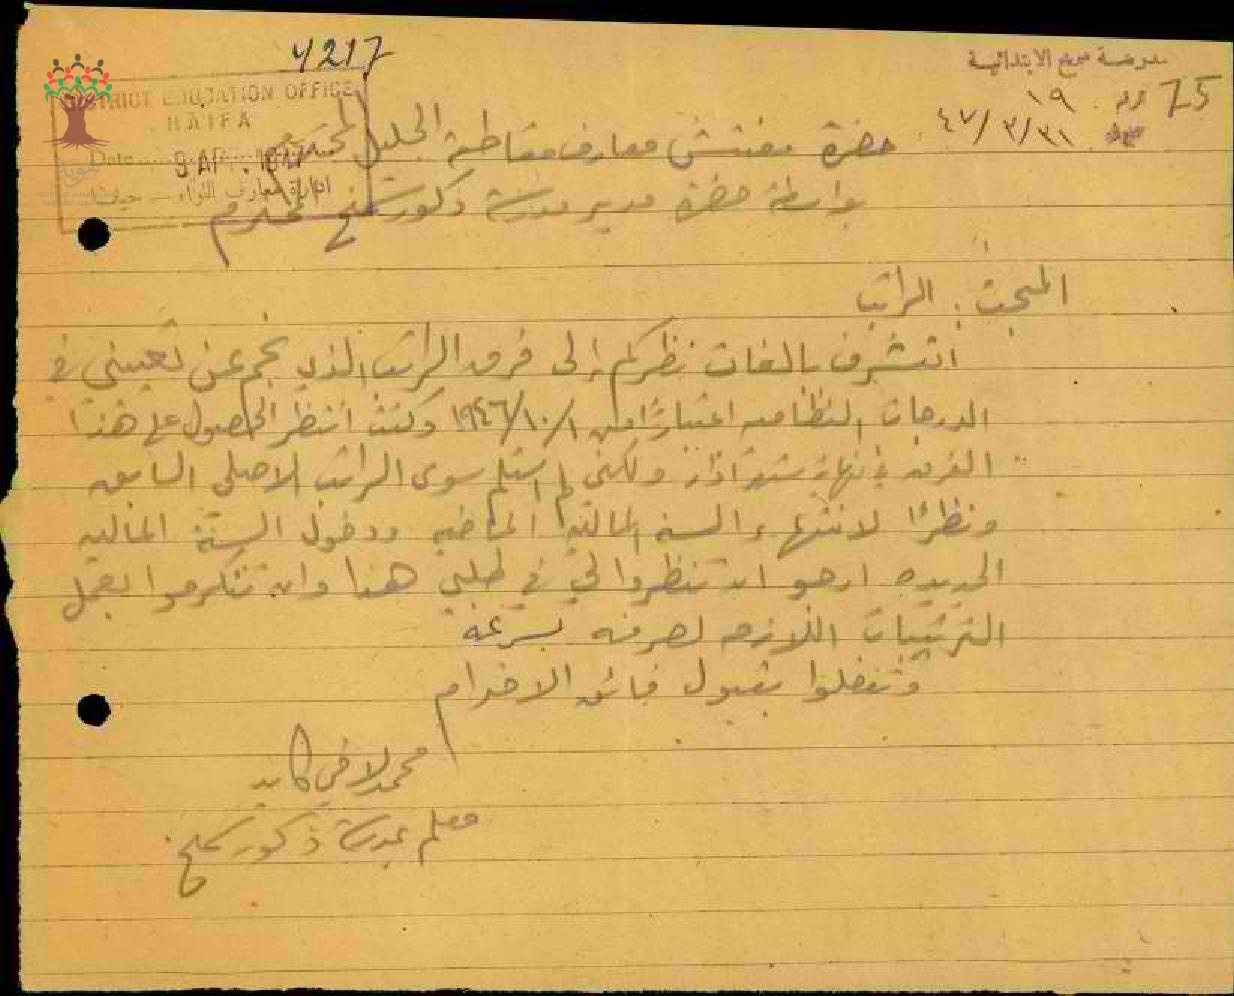 4217
مدرسة سمخ الابتدائية
75
١٩
٤٧/٣/٣١
DISTRICT EDUCATION OFFICE
HAIFA
Date
9 AP . 1947
ادارة معارف اللواء — حيفا
حضرة مفتش معارف مقاطعة الجليل المحترم
بواسطة حضرة مدير مدرسة ذكور سمخ المحترم
المبحث : الراتب
اتشرف بالفات نظركم الى فرق الراتب الذي نجم عن تعييني في
الدرجات النظاميه اعتباراً من ١٩٤٦/١٠/١ وكنت انتظر الحصول على هذا
الفرق في نهاية شهر اذار ولكني لم استلم سوى الراتب الاصلي السابق
ونظراً لانتهاء السنه المالية الماضيه ودخول السنة الماليه
الجديده ارجو ان تنظروا لي في طلبي هذا وان تتكرموا بعمل
الترتيبات اللازمه لصرفه بسرعه
وتفضلوا بقبول فائق الاحترام
محمد لافي كايد
معلم بمدرسة ذكور سمخ